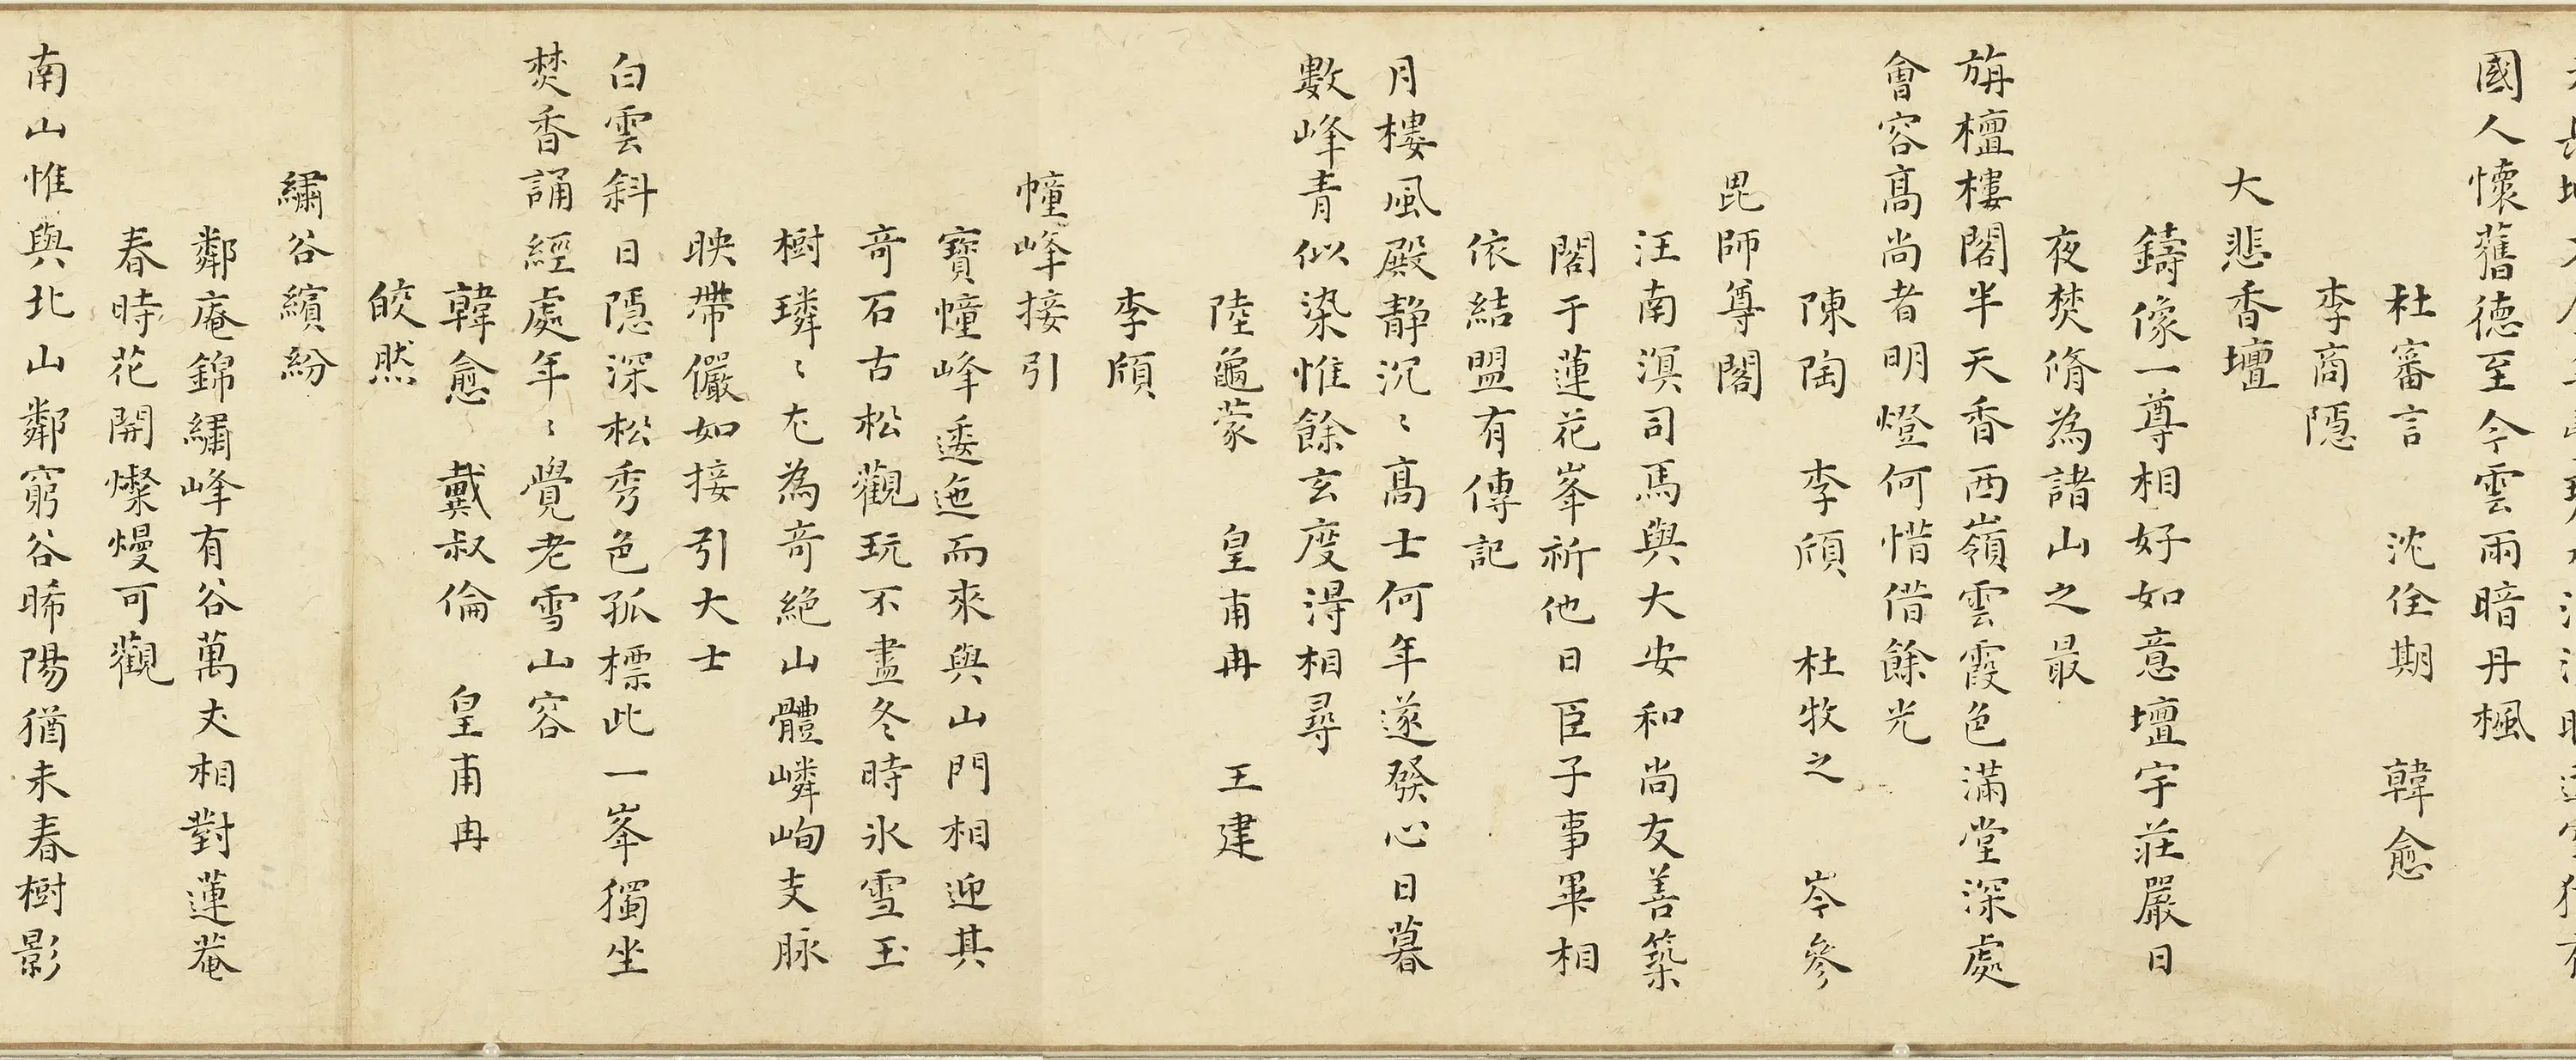 國人懷舊德至今雲雨暗丹楓
杜審言　沈佺期　韓愈
李商隱
大悲香壇
鑄像一尊相好如意壇宇莊嚴日
夜焚脩為諸山之最
旃檀樓閣半天香西嶺雲霞色滿堂深處
會容高尚者明燈何惜借餘光
陳陶　李頎　杜牧之　岑參
毘師尊閣
汪南溟司馬與大安和尚友善築
閣于蓮花峯祈他日臣子事畢相
依結盟有傳記
月樓風殿靜沉〻高士何年遂發心日暮
數峰青似染惟餘玄度淂相尋
陸龜蒙　皇甫冉　王建
李頎
幢峰接引
寶幢峰逶迤而來與山門相迎其
奇石古松觀玩不盡冬時氷雪玉
樹璘〻尤為奇絕山體嶙峋支脉
映帶儼如接引大士
白雲斜日隱深松秀色孤標此一峯獨坐
焚香誦經處年〻覺老雪山容
韓愈　戴叔倫　皇甫冉
皎然
繡谷繽紛
鄰庵錦繡峰有谷萬丈相對蓮菴
春時花開燦熳可觀
南山惟與北山鄰窮谷晞陽猶未春樹影